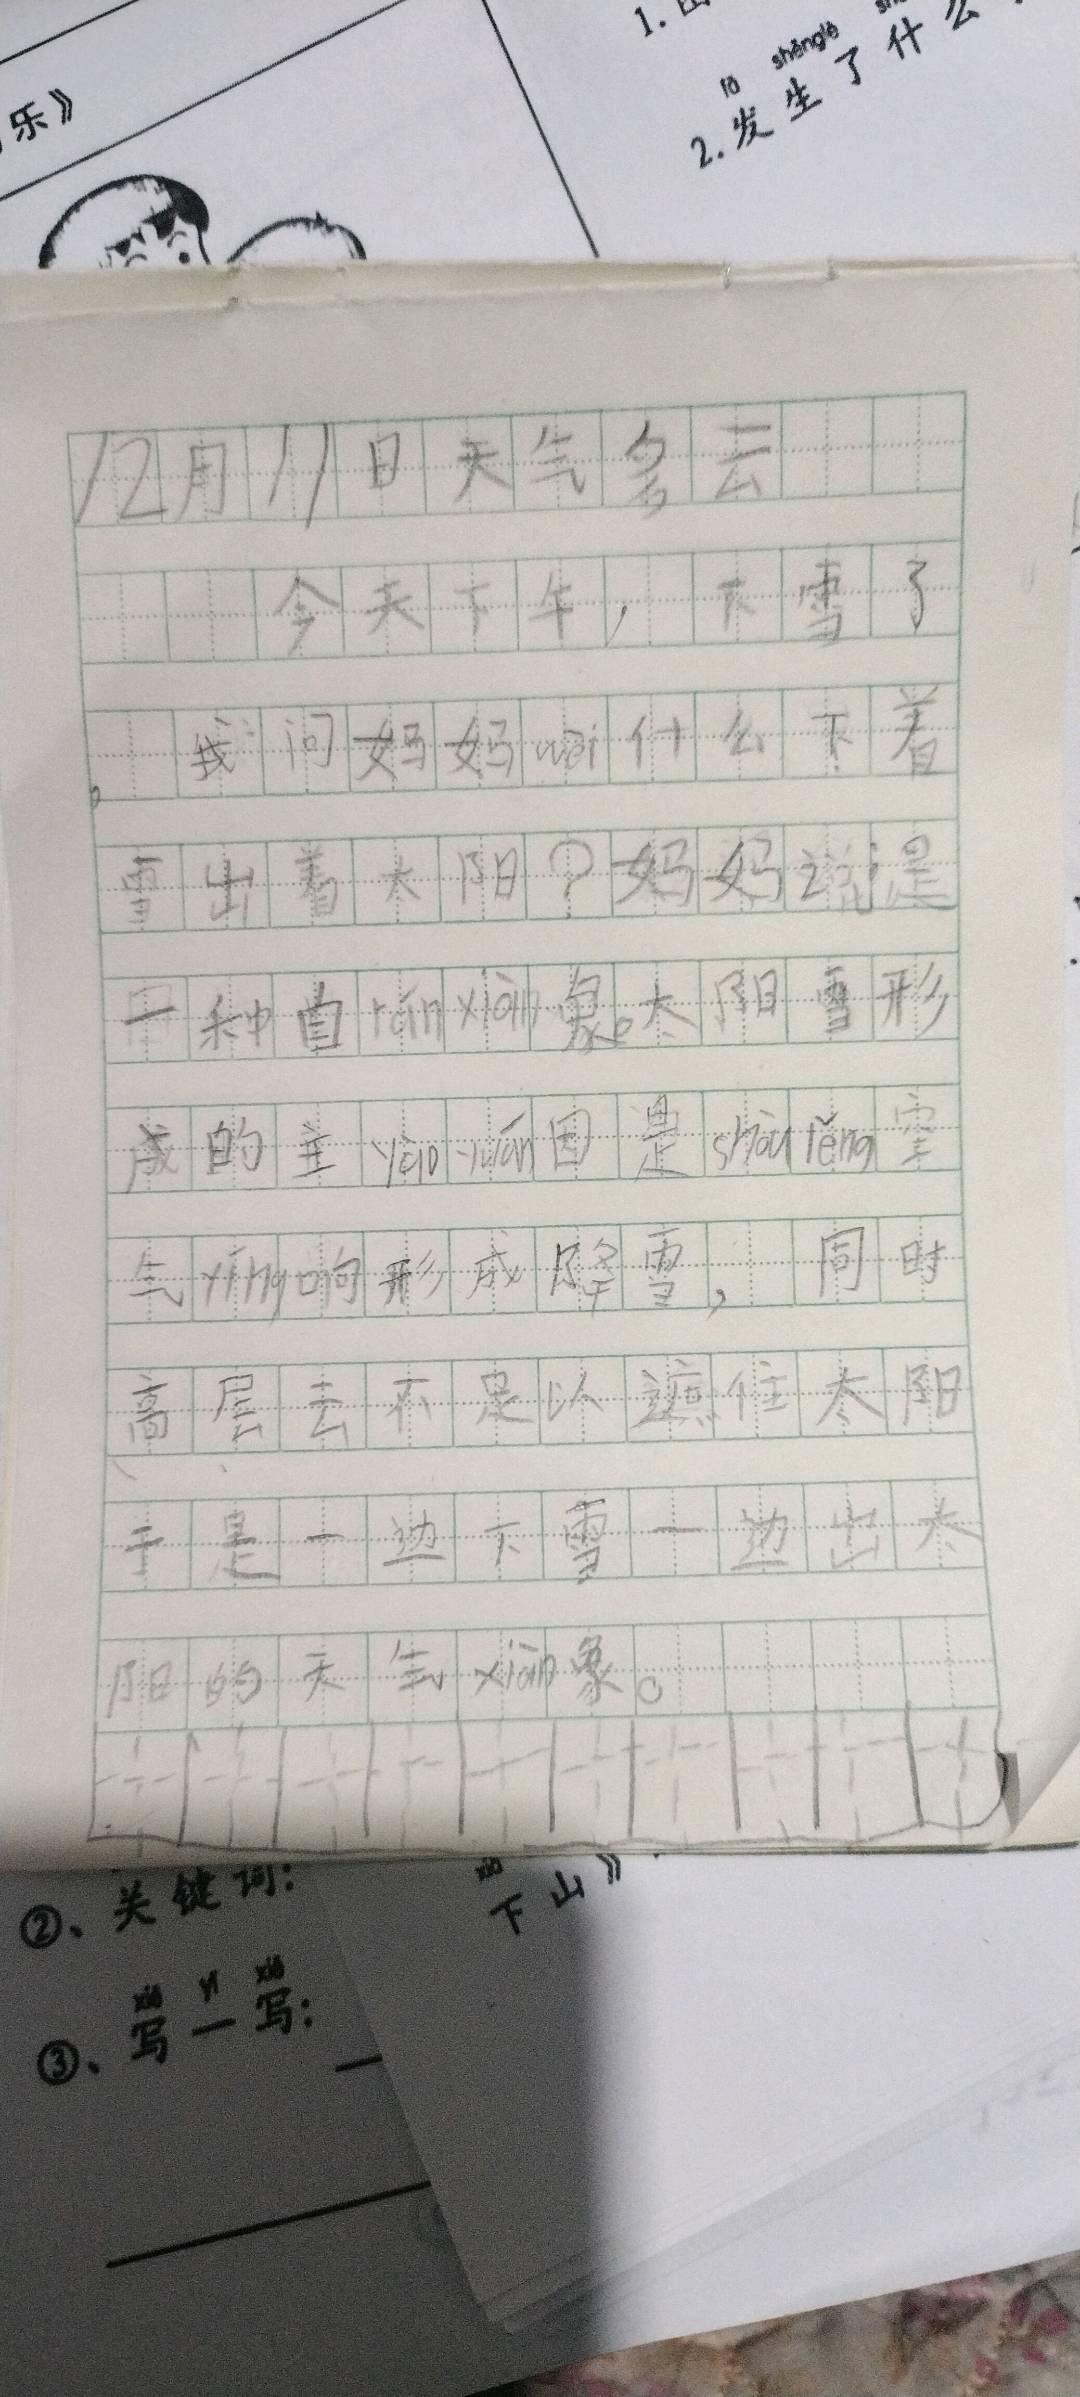 乐》
1.
fā shēng le
2.发生了什么
12月11日天气多云
今天下午,下雪了
。我问妈妈wèi什么下着
雪出着太阳?妈妈说是
一种自ránxiàn象。太阳雪形
成的主yàoyuán因是shòulěng空
气yǐng响形成降雪,同时
高层云不足以遮住太阳
于是一边下雪一边出太
阳的天气xiàn象。
②、关键词:
xià
下山》
xiě yī xiě
③、写一写: